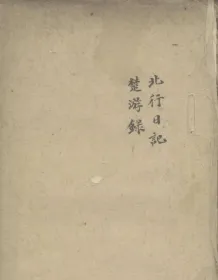 北行日記
楚游録